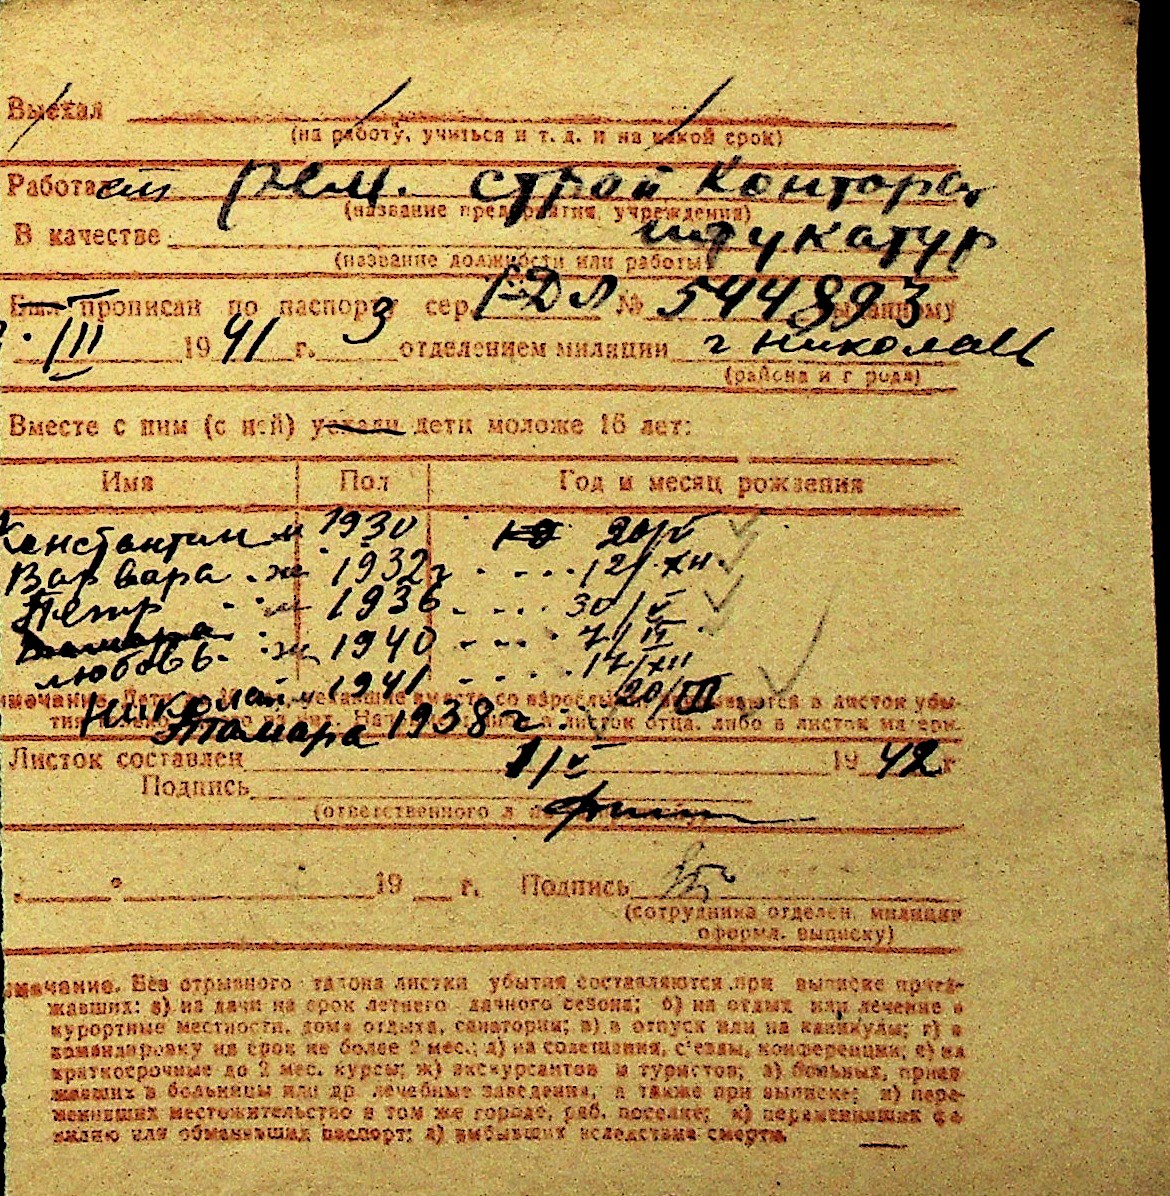 Выехал
(на работу, учиться и т. д. и на какой срок)
Работает рем. строй контора
(название предприятия, учреждения)
В качестве штукатур
(название должности или работы)
Был прописан по паспорту сер. № 544893 выданному
III 1941 г. 3 отделением милиции г Николаев
(района и города)
Вместе с ним (с ней) уехали дети моложе 16 лет:
Имя Пол Год и месяц рождения
Константин м 1930 20/V
Варвара ж 1932 г 12/XII
Петр м 1936 30/V
Тамара ж 1940 7/IV
Любовь 17/XII
Николай 1941 20/III
Тамара 1938 г
Листок составлен 1/V 1942 г
Подпись
(ответственного
19 г. Подпись
(сотрудника отделен. милиции
оформл. выписку)
Без отрывного талона листки убытия составляются при выписке приез-
жавших: а) на дачи на срок летнего дачного сезона; б) на отдых или лечение в
курортные местности, дома отдыха, санатории; в) в отпуск или на каникулы; г) в
командировку на срок не более 2 мес.; д) на совещания, с'езды, конференции; е) на
краткосрочные до 2 мес. курсы; ж) экскурсантов и туристов; з) больных, приез-
жавших в больницы или др лечебные заведения, а также при выписке; и) пере-
менивших местожительство в том же городе, раб. поселке; к) переменивших фа-
милию или обменявших паспорт; л) выбывших вследствие смерти.